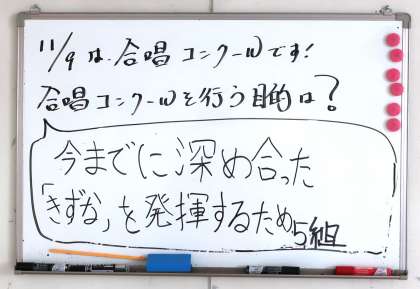 11/9は、合唱コンクールです!
合唱コンクールを行う目的は?
今までに深め合った
「きずな」を発揮するため
5組